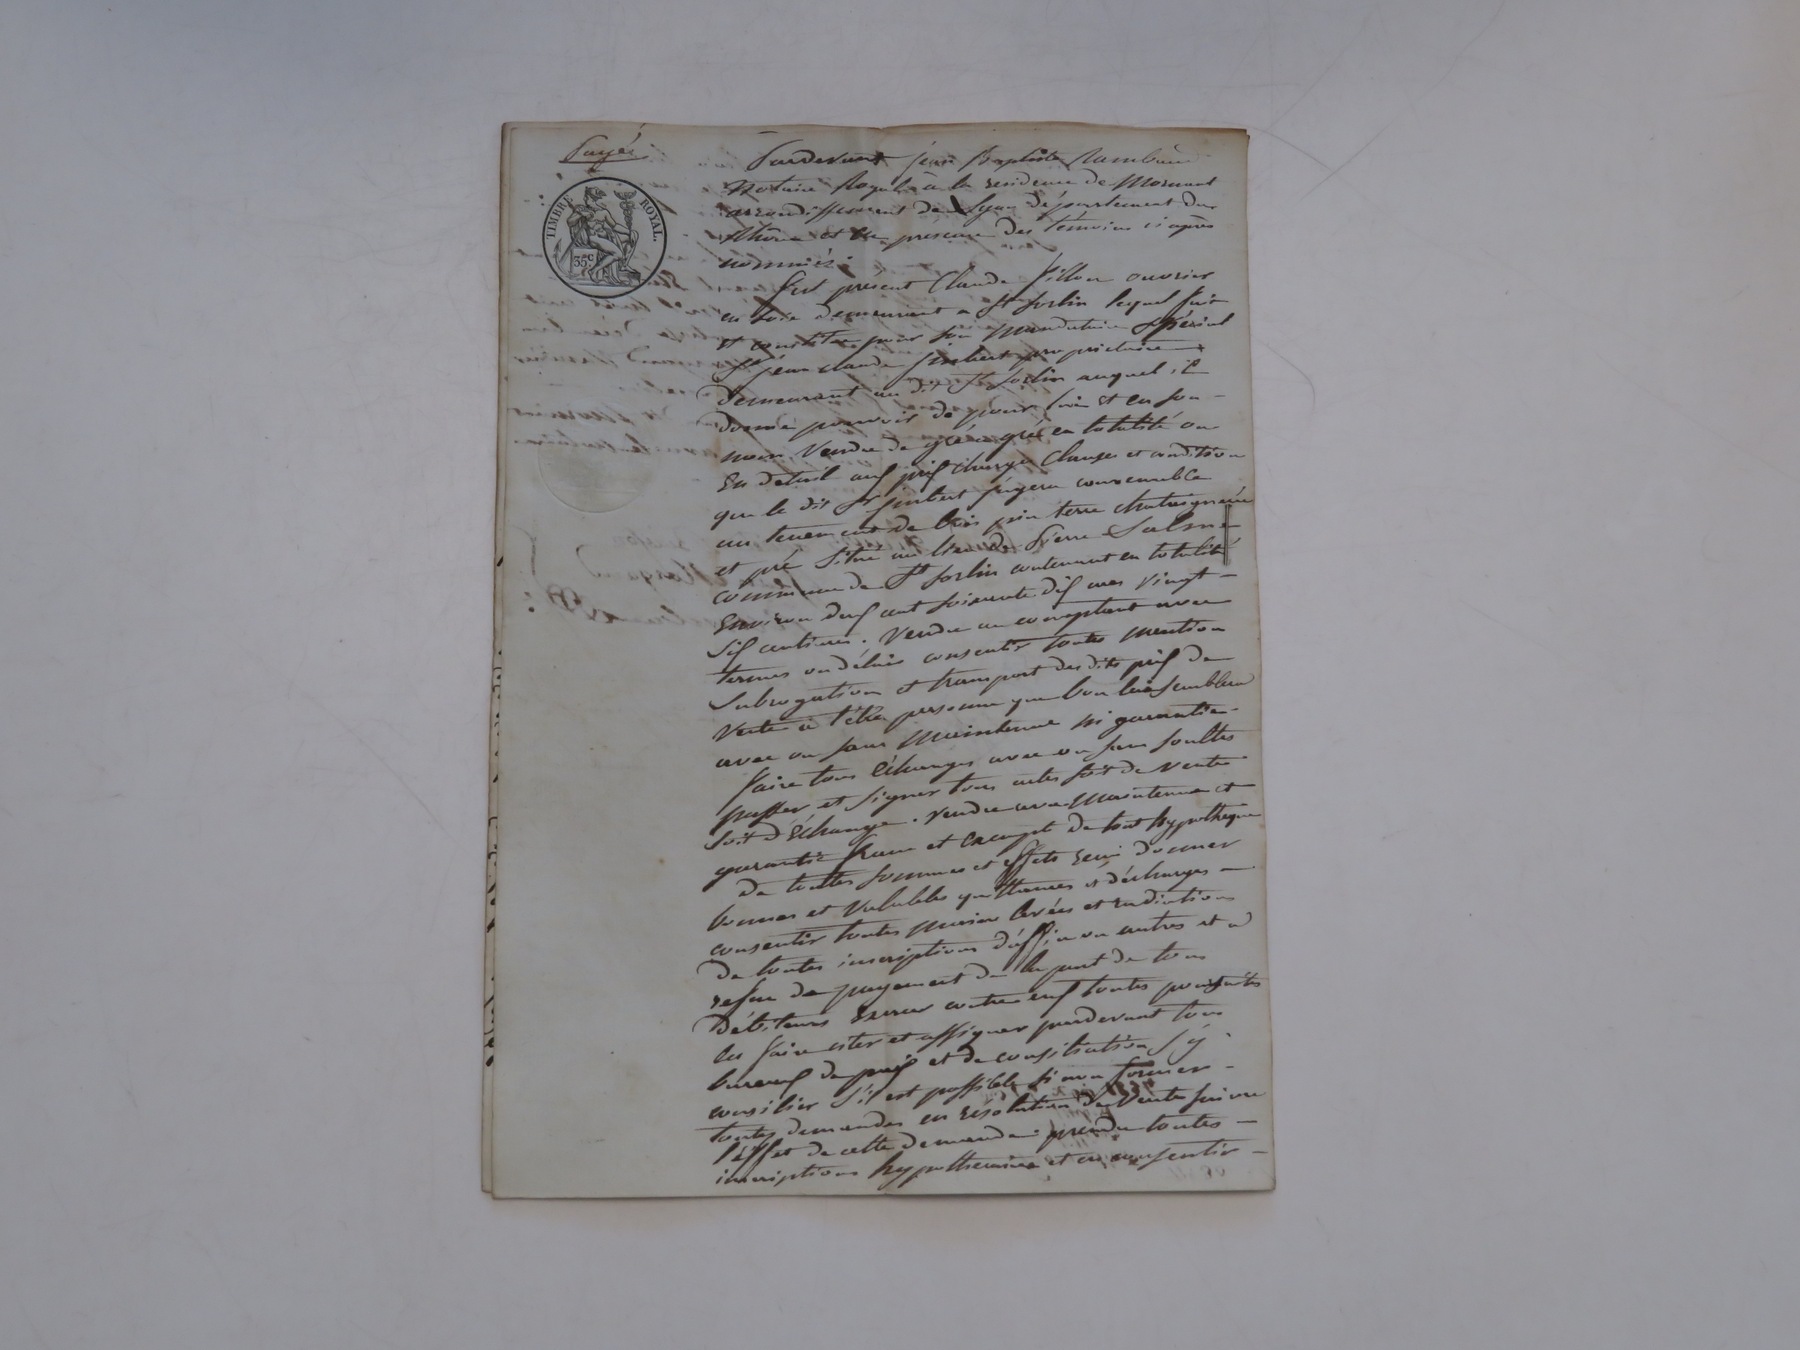 Payé
TIMBRE ROYAL.
35 c
Pardevant jean Baptiste Rambaud
Notaire Royal à la residence de Mornant
arrondissement de Lyon département du
Rhône et en presence des témoins ci après
nommés :
Fut présent Claude Pillon ouvrier
en soie demeurant a St Sorlin lequel fait
et constitue pour son mandataire spécial
Sr jean claude jimbert propriétaire
demeurant au dit St Sorlin auquel il
donne pouvoir de pour lui et en son
nom, Vendre de gré a gré en totalité ou
En detail aux prix charges Clauses et conditions
que le dit Sr jimbert jugera convenable
un tenement de bois pin terre chataigneraie
et pré situé au lieu de Pierre Salme
commune de St Sorlin contenant en totalité
Environ deux cent soixante dix ares Vingt
six centiares. Vendre au comptant avec
termes ou délais consentir toutes mention
Subrogation et transport des dits prix de
Vente à telle personne que bon lui semblera
avec ou sans maintenue ni garantie
faire tous Echanges avec ou sans soultes
passer et signer tous actes soit de Vente
soit d'Echange. Vendre avec maintenue et
garantie franc et exempt de tout hypotheque
De toutes sommes et effets reçus donner
bonnes et Valables quittances et décharges
consentir toutes main levées et radiations
de toutes inscriptions d'office ou autres et a
refus de payement de la part de tous
Débiteurs Exercer contre eux toutes poursuites
les faire citer et assigner pardevant tous
bureaux de paix et de consiliation s'y
consilier s'il est possible si non former
toutes demandes en résolution de Vente suivre
l'effet de cette demande prendre toutes
inscriptions hypothecaires et en consentir